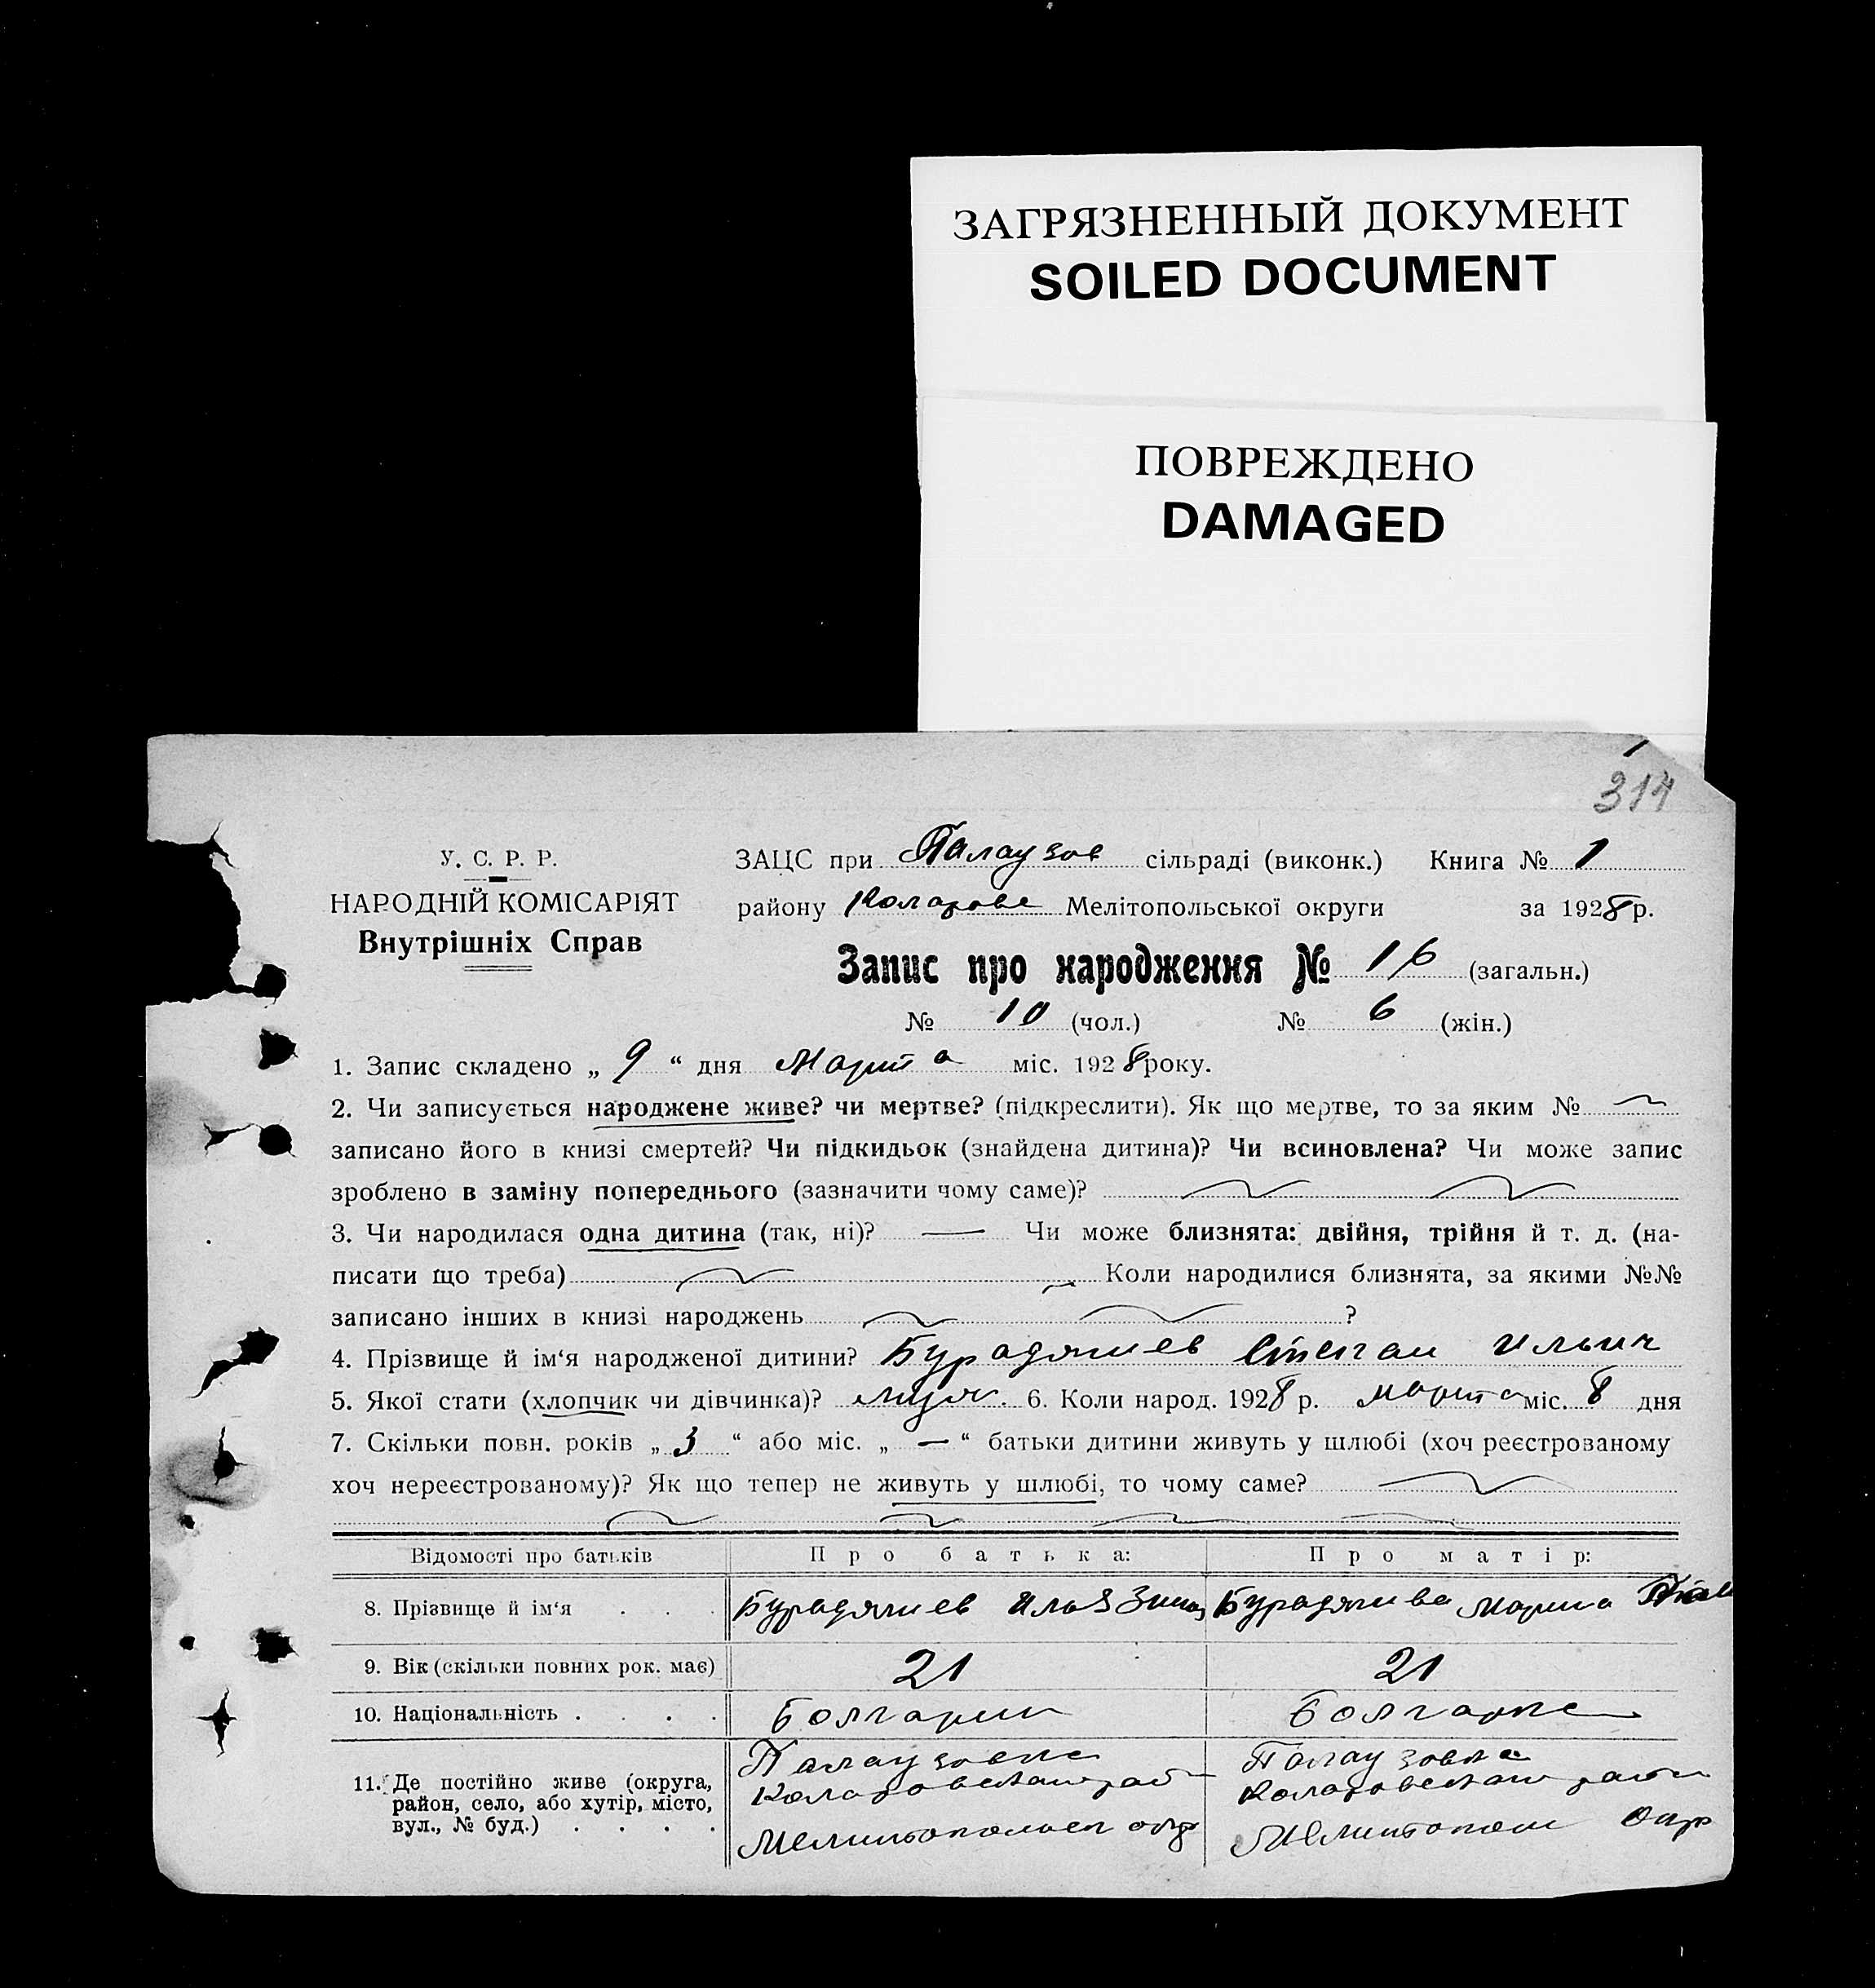 ЗАГРЯЗНЕННЫЙ ДОКУМЕНТ
SOILED DOCUMENT
ПОВРЕЖДЕНО
DAMAGED
314
У. С. Р. Р.
НАРОДНІЙ КОМІСАРІЯТ
Внутрішніх Справ
ЗАЦС при Палаузов сільраді (виконк.) Книга № 1
району Коларове Мелітопольської округи за 1928 р.
Запис про народження № 16 (загальн.)
№ 10 (чол.) № 6 (жін.)
1. Запис складено „ 9 “ дня Марта міс. 1928 року.
2. Чи записується народжене живе? чи мертве? (підкреслити). Як що мертве, то за яким №
записано його в книзі смертей? Чи підкидьок (знайдена дитина)? Чи всиновлена? Чи може запис
зроблено в заміну попереднього (зазначити чому саме)?
3. Чи народилася одна дитина (так, ні)? — Чи може близнята: двійня, трійня й т. д. (на-
писати що треба) Коли народилися близнята, за якими №№
записано інших в книзі народжень ?
4. Прізвище й ім‘я народженої дитини? Бураджиев Степан Ильич
5. Якої стати (хлопчик чи дівчинка)? муж. 6. Коли народ. 1928 р. марта міс. 8 дня
7. Скільки повн. років „ 3 “ або міс. „ — “ батьки дитини живуть у шлюбі (хоч реєстрованому
хоч нереєстрованому)? Як що тепер не живуть у шлюбі, то чому саме?
Відомості про батьків Про батька: Про матір:
8. Прізвище й ім‘я . . . Бураджиев Илья Бураджиева Марина
9. Вік (скільки повних рок. має) 21 21
10. Національність . . . . Болгарин Болгарка
11. Де постійно живе (округа, Палаузовка Палаузовка
район, село, або хутір, місто,
вул., № буд.) . . . . Окр